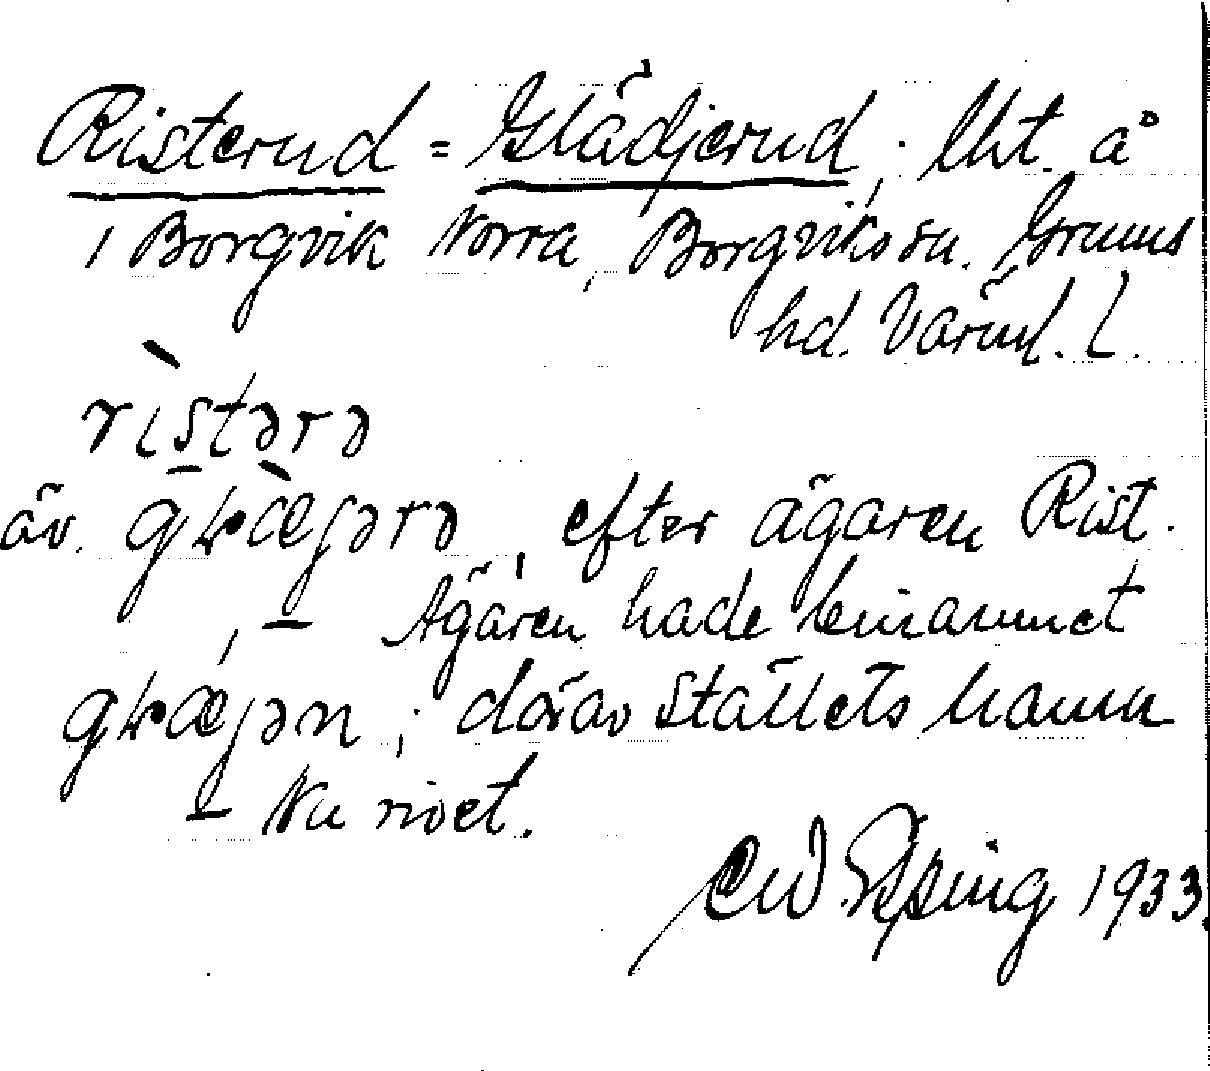 Risterud = Glädjerud, lht. å
i Borgvik Norra, Borgviks sn. Grums
hd. Värml. l.
ristərə
äv. gɽæjərə, efter ägaren Rist.
, – Ägaren hade binamnet
gɽæjən; därav ställets namn
– Nu rivet.
1933.